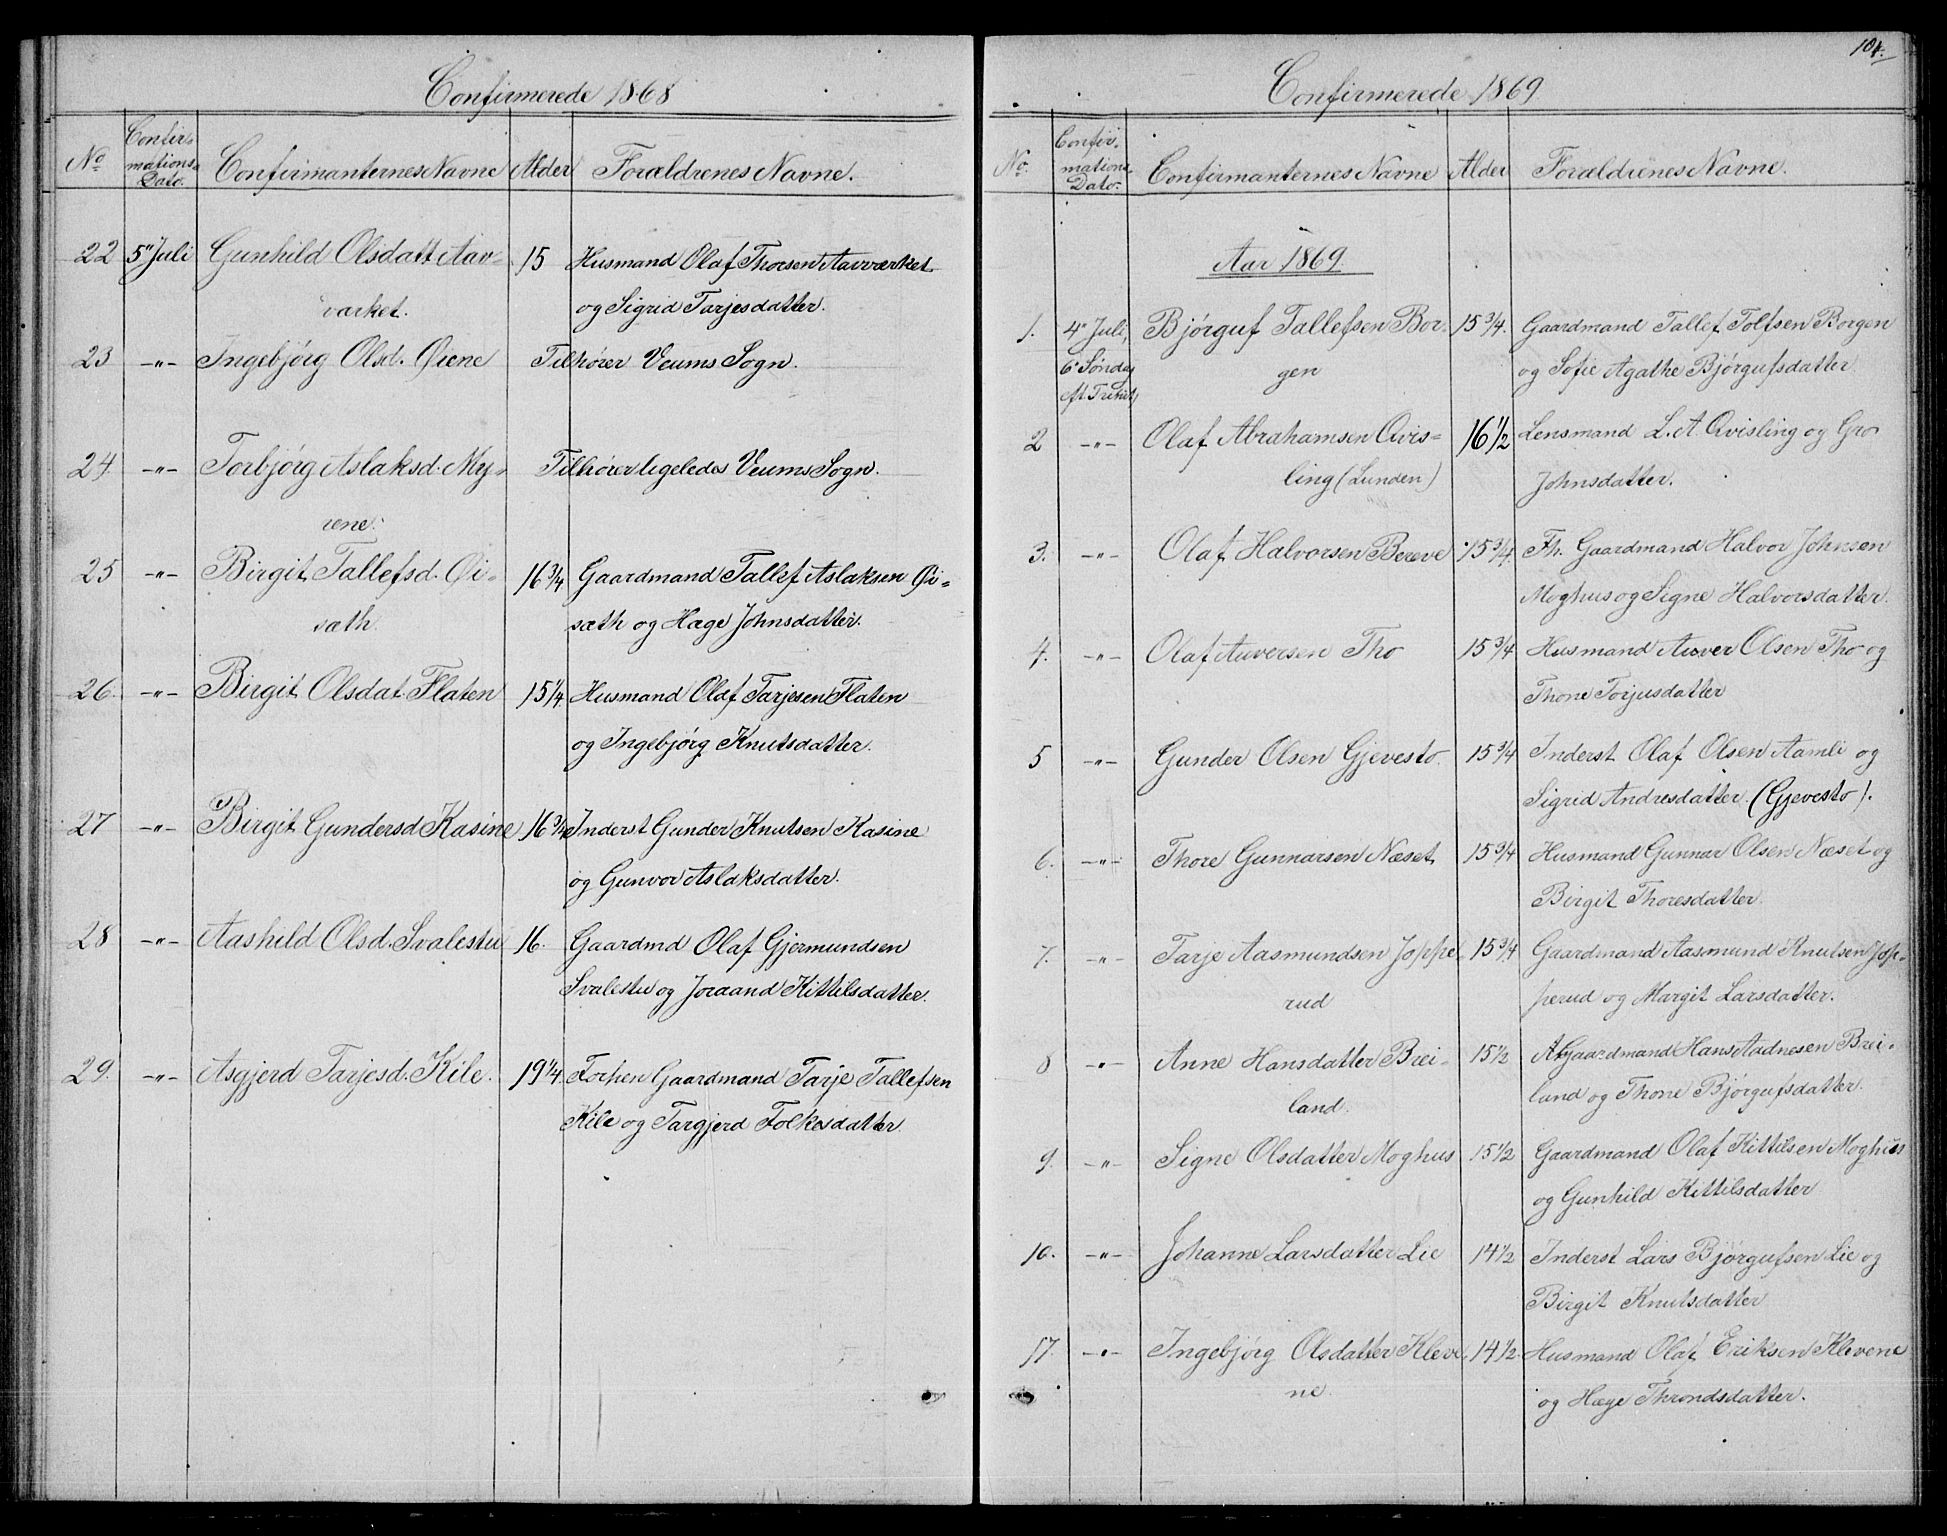 Confirmerede 1868
No
Confir-
mations-
Dato.
Confirmanternes Navne
Alder
Forældrenes Navne.
22 5" Juli Gunhild Olsdatt. Aav- 15 Husmand Olaf Thorsen Aavværket
værket. og Sigrid Tarjesdatter.
23 -"- Ingebjørg Olsd. Øiene Tilhører Veums Sogn.
24. -"- Torbjørg Aslaksd. My- Tilhører ligeledes Veums Sogn.
rene.
25 -"- Birgit Tallefsd. Øi- 16 3/4 Gaardmand Tallef Aslaksen Øi-
sæth. sæth og Hæge Johnsdatter.
26. -"- Birgit Olsdat. Flaten 15 1/4 Husmand Olaf Tarjesen Flaten
og Ingebjørg Knutsdatter.
27 -"- Birgit Gundersd. Kasine 16 3/4 Inderst Gunder Knutsen Kasine
og Gunvor Aslaksdatter.
28 -"- Aashild Olsd. Svalestu 16. Gaardmd Olaf Gjermundsen
Svalestu og Joraand Kittilsdatter.
29. -"- Asgjerd Tarjesd. Kile. 19 1/4. Forhen Gaardmand Tarje Tallefsen
Kile og Targjerd Folkesdatter.
104.
Confirmerede 1869
No.
Confir-
mations
Dato.
Confirmanternes Navne
Alder
Forældrenes Navne.
Aar 1869.
1. 4" Juli, Bjørguf Tallefsen Bor- 15 3/4. Gaardmand Tallef Tolfsen Borgen
6" Søndag gen og Sofie Agathe Bjørgufsdatter
eft. Trinit,
2 -"- Olaf Abrahamsen Qvis- 16 1/2 Lensmand L. A. Qvisling og Gro
ling (Lunden) Johnsdatter.
3. -"- Olaf Halvorsen Bereve 15 3/4. Fh. Gaardmand Halvor Johnsen
Moghus og Signe Halvorsdatter.
4. -"- Olaf Auversen Tho 15 3/4 Husmand Auver Olsen Tho og
Thone Torjusdatter
5 -"- Gunder Olsen Gjevesto 15 3/4 Inderst Olaf Olsen Aamli og
Sigrid Andresdatter. (Gjevesto).
6. -"- Thore Gunnarsen Næset 15 3/4 Husmand Gunnar Olsen Næset og
Birgit Thoresdatter.
7. -"- Tarje Aasmundsen Joppe- 15 3/4 Gaardmand Aasmund Knutsen Jop-
rud perud og Margit Larsdatter.
8 -"- Anne Hansdatter Brei- 15 1/2 Gaardmand Hans Aadnesen Brei-
land. land og Thone Bjørgufsdatter.
9. -"- Signe Olsdatter Moghus 15 1/2 Gaardmand Olaf Kittilsen Moghus
og Gunhild Kittilsdatter
10. -"- Johanne Larsdatter Lie 14 1/2 Inderst Lars Bjørgufsen Lie og
Birgit Knutsdatter
11. -"- Ingebjørg Olsdatter Kleve- 14 1/2. Husmand Olaf Eriksen Klevene
ne. og Hæge Throndsdatter.